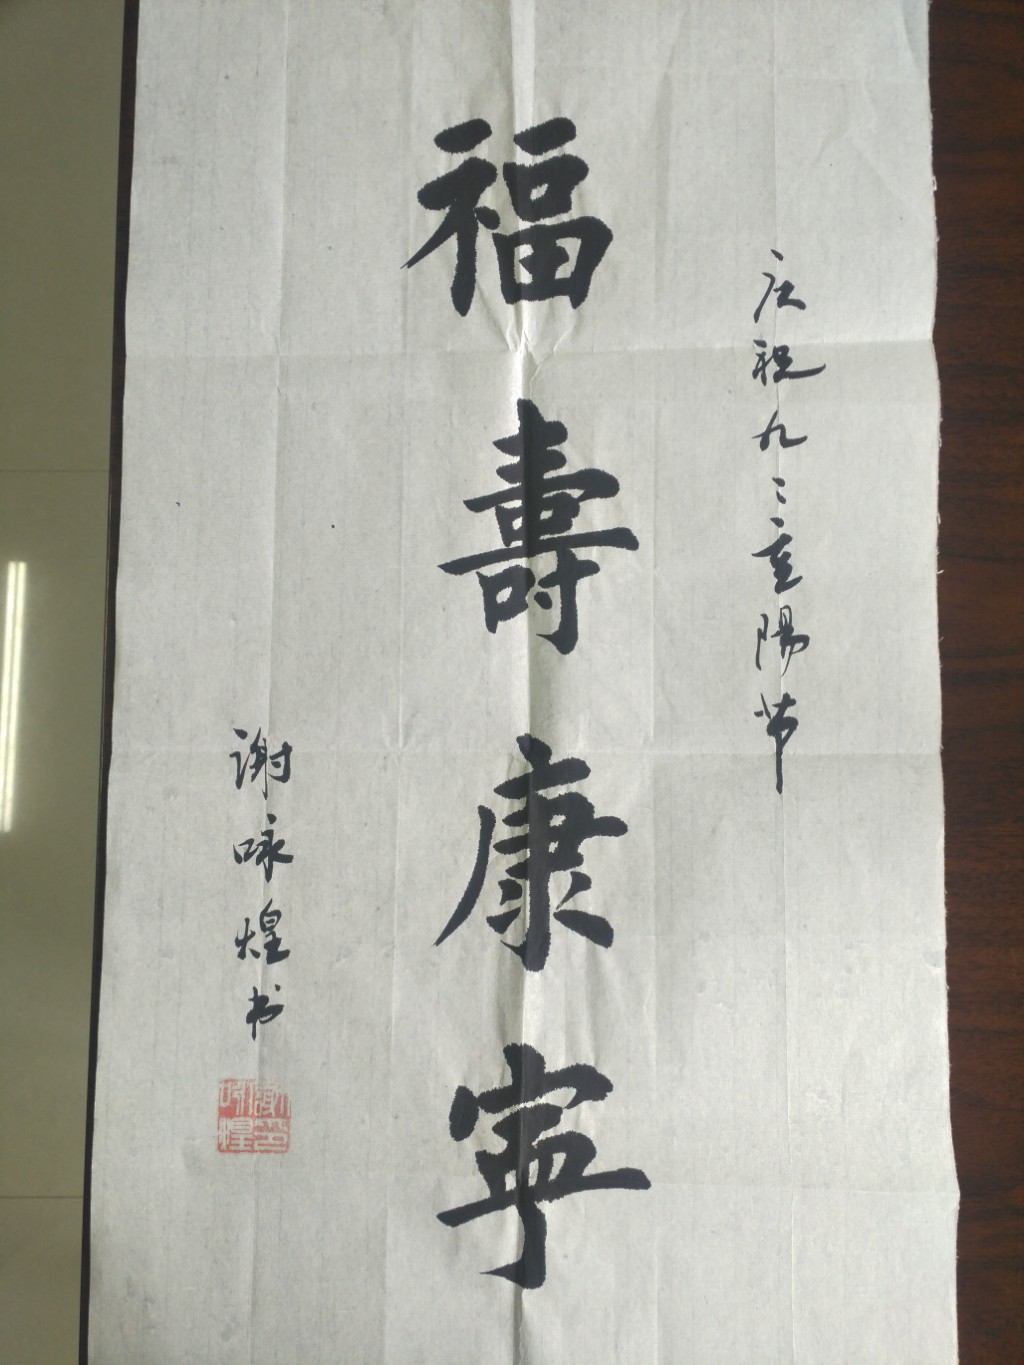 庆祝九〻重陽节
福壽康寧
谢咏煌书
謝咏煌印